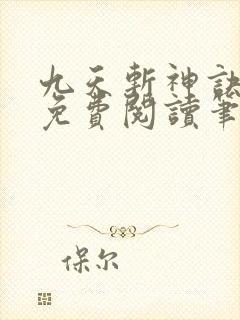 九天斬神訣
免費閱讀筆
保尔